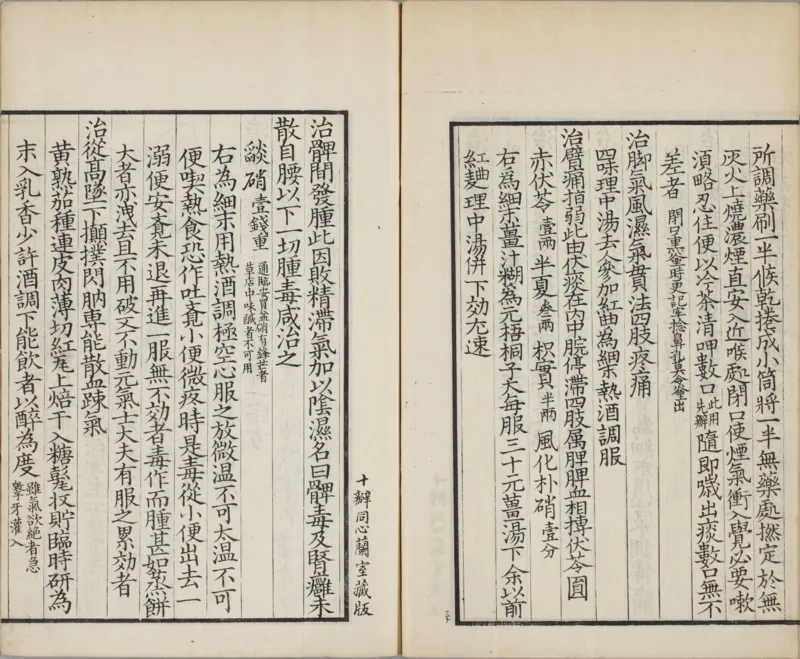 所調藥刷一半候乾捲成小筒將一半無藥處撚定於無
灰火上燒濃煙直安入近喉處閉口使煙氣衝入覺必要嗽
須略忍住便以冷茶清呷數口此用先辦隨即嗽出痰數口無不
差者閉口熏時更記牢捻鼻孔莫令出
治脚氣風濕氣貫法四肢疼痛
四味理中湯去人參加紅曲為細末熱酒調服
治臂痛指弱此由伏痰在内中脘停滯四肢属脾脾血相搏伏苓圓
赤伏苓壹兩半夏叁兩枳實半兩風化朴硝壹分
右為細末薑汁糊為元梧桐子大每服三十元薑湯下余以前
紅麯理中湯併下効尤速
治髀間發腫此因敗精滯氣加以陰濕名曰髀毒及腎癰未
散自腰以下一切腫毒咸治之
燄硝壹錢重通臨安買盆硝有鋒芒者草店中味醎者不可用
右為細末用熱酒調極空心服之放微温不可太温不可
便喫熱食恐作吐竟小便微疼時是毒從小便出去一
溺便安竟未退再進一服無不効者毒作而腫甚如蒸餅
大者亦洩去且不用破又不動元氣士大夫有服之累効者
治從高墜下攧撲閃肭專能散血踈氣
黄熟茄種連皮肉薄切紅瓦上焙干入糖髦收貯臨時研為
末入乳香少許酒調下能飲者以醉為度雖氣欲絕者急擊牙灌入
十瓣同心蘭室藏版